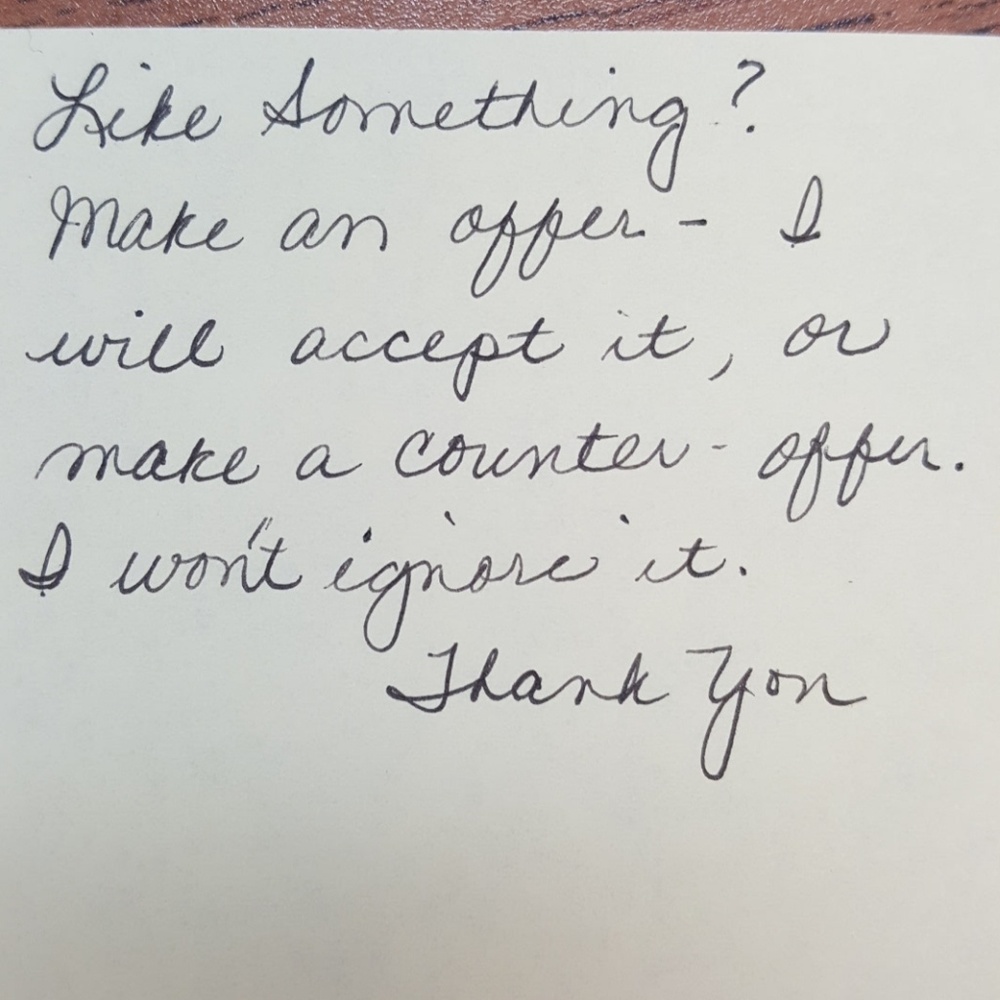 Like Something?
Make an offer - I
will accept it, or
make a counter-offer.
I won't ignore it.
Thank You